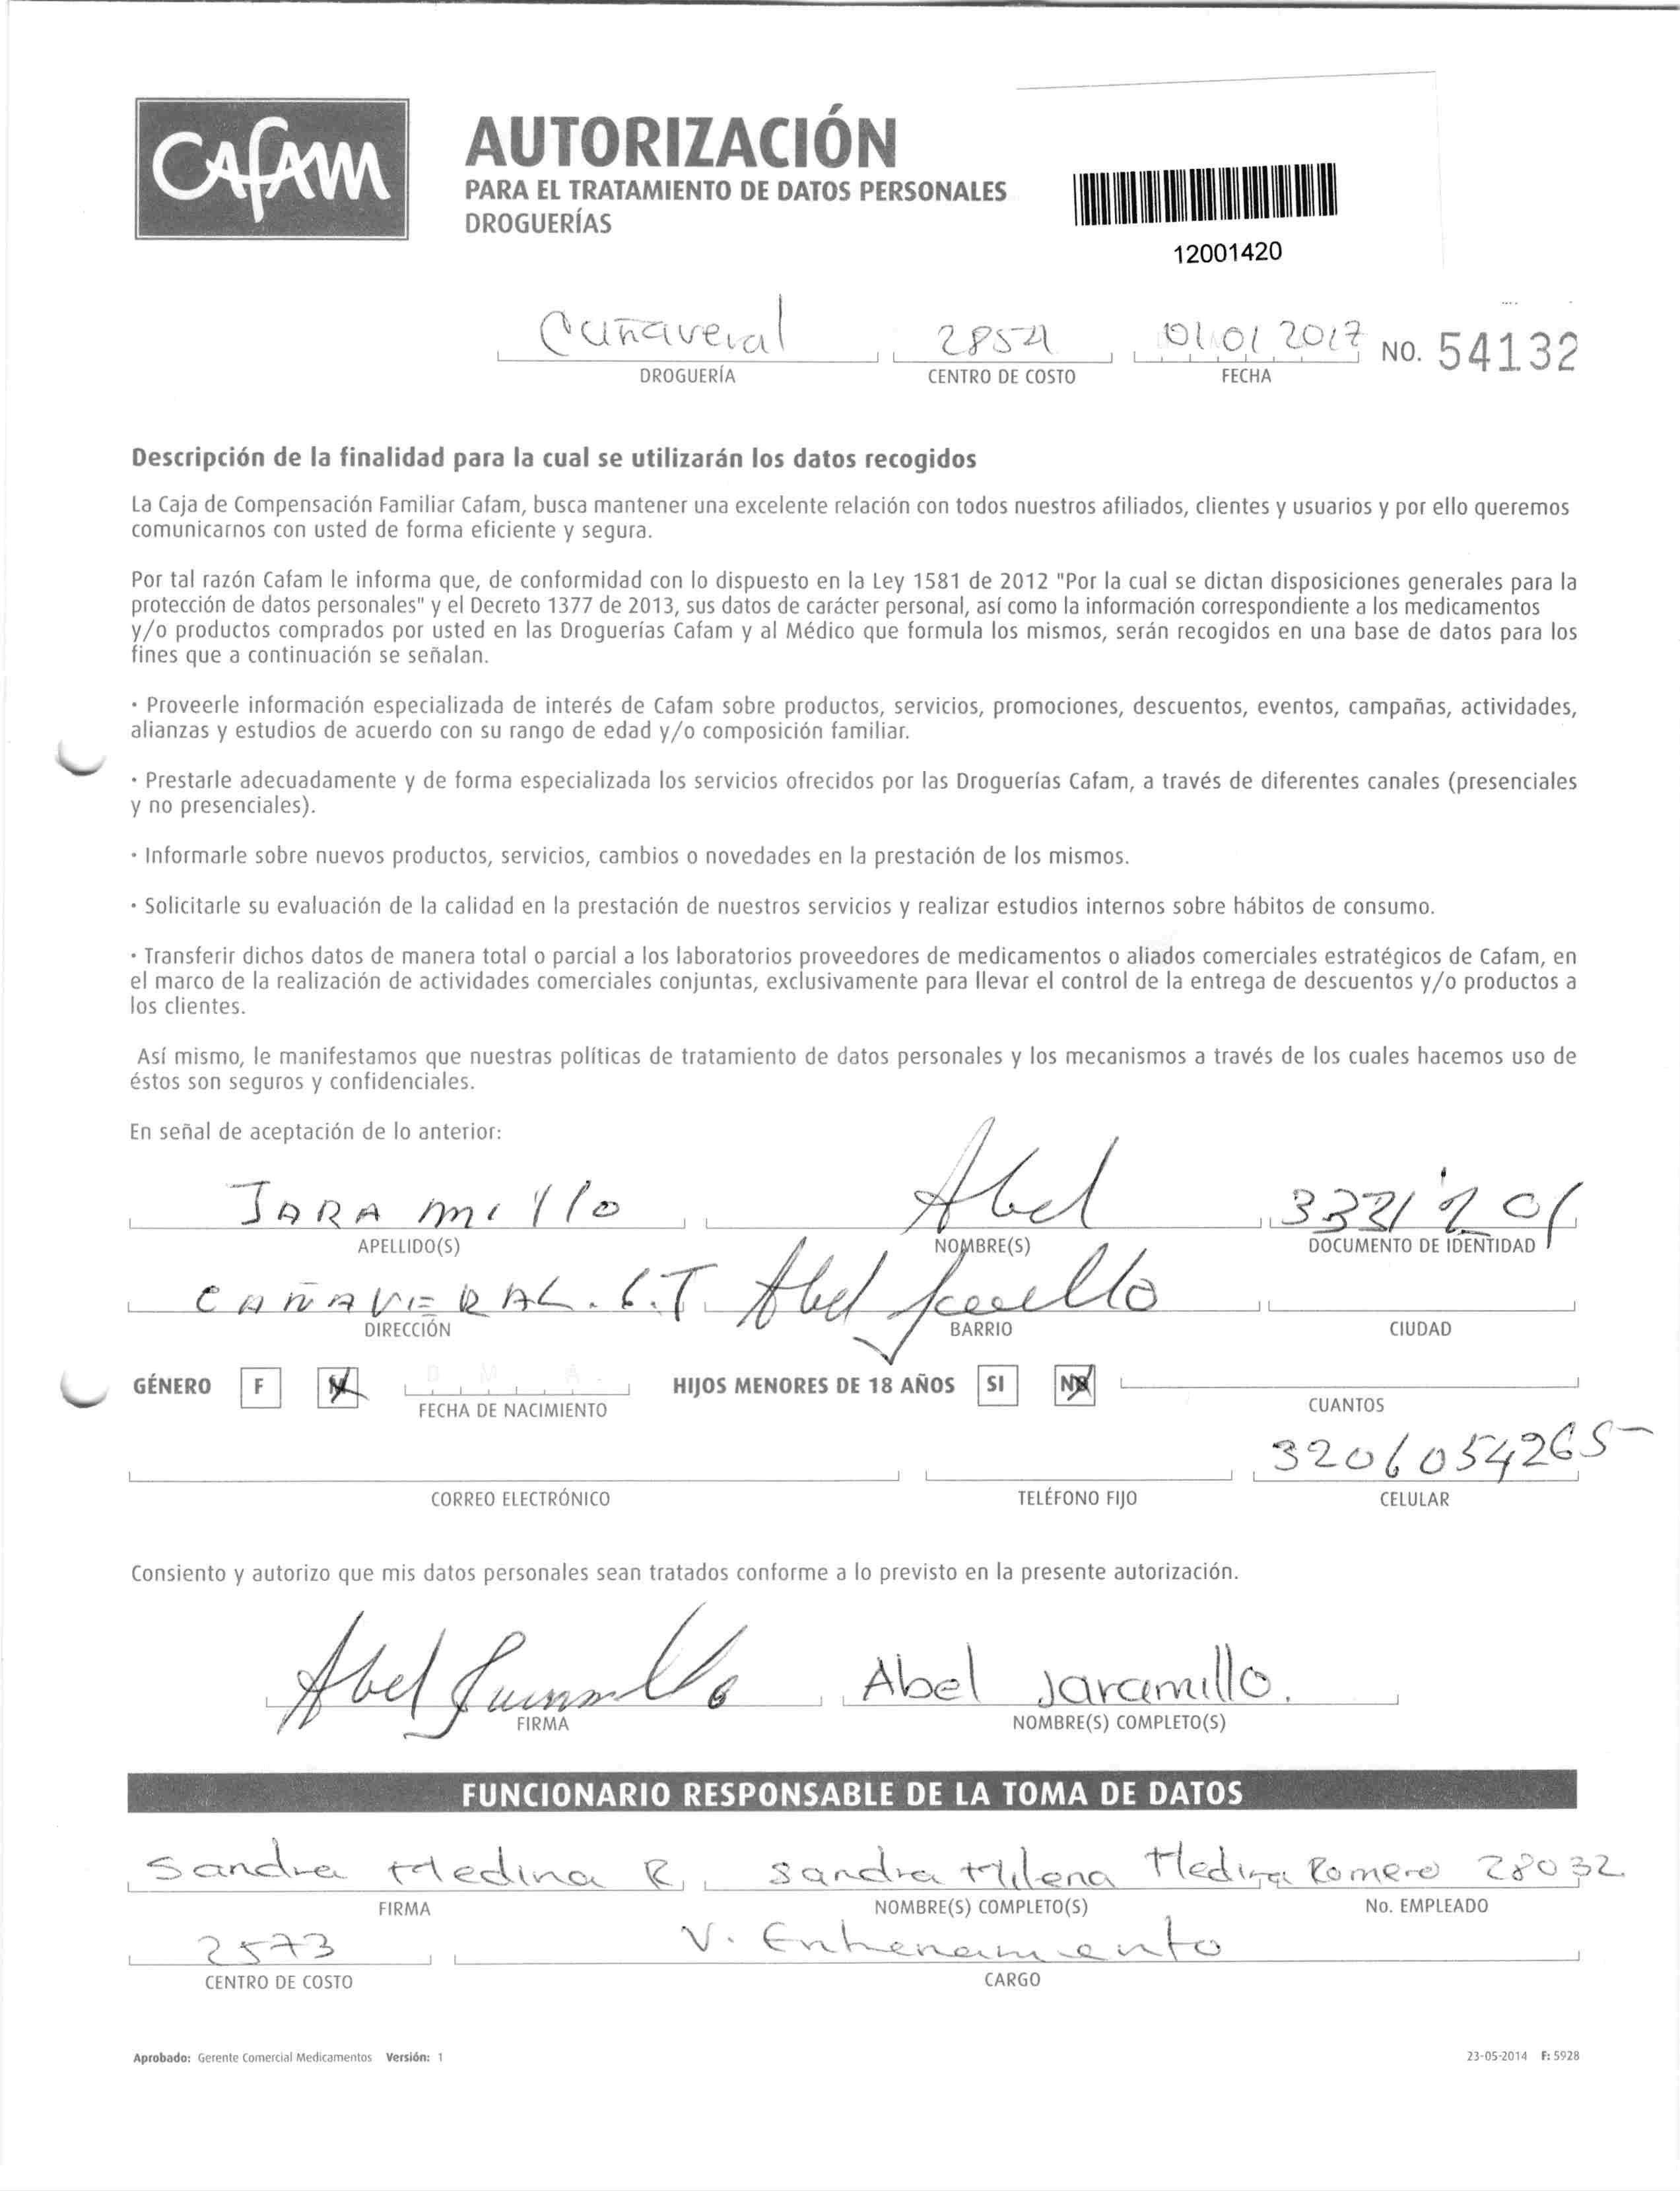 CAFAM
AUTORIZACIÓN
PARA EL TRATAMIENTO DE DATOS PERSONALES
DROGUERÍAS
12001420
Cañaveral 2854 01 01 2017 NO. 54132
DROGUERÍA CENTRO DE COSTO FECHA
Descripción de la finalidad para la cual se utilizarán los datos recogidos
La Caja de Compensación Familiar Cafam, busca mantener una excelente relación con todos nuestros afiliados, clientes y usuarios y por ello queremos
comunicarnos con usted de forma eficiente y segura.
Por tal razón Cafam le informa que, de conformidad con lo dispuesto en la Ley 1581 de 2012 "Por la cual se dictan disposiciones generales para la
protección de datos personales" y el Decreto 1377 de 2013, sus datos de carácter personal, así como la información correspondiente a los medicamentos
y/o productos comprados por usted en las Droguerías Cafam y al Médico que formula los mismos, serán recogidos en una base de datos para los
fines que a continuación se señalan.
· Proveerle información especializada de interés de Cafam sobre productos, servicios, promociones, descuentos, eventos, campañas, actividades,
alianzas y estudios de acuerdo con su rango de edad y/o composición familiar.
· Prestarle adecuadamente y de forma especializada los servicios ofrecidos por las Droguerías Cafam, a través de diferentes canales (presenciales
y no presenciales).
· Informarle sobre nuevos productos, servicios, cambios o novedades en la prestación de los mismos.
· Solicitarle su evaluación de la calidad en la prestación de nuestros servicios y realizar estudios internos sobre hábitos de consumo.
· Transferir dichos datos de manera total o parcial a los laboratorios proveedores de medicamentos o aliados comerciales estratégicos de Cafam, en
el marco de la realización de actividades comerciales conjuntas, exclusivamente para llevar el control de la entrega de descuentos y/o productos a
los clientes.
Así mismo, le manifestamos que nuestras políticas de tratamiento de datos personales y los mecanismos a través de los cuales hacemos uso de
éstos son seguros y confidenciales.
En señal de aceptación de lo anterior:
JARAMillo Abel
APELLIDO(S) NOMBRE(S) DOCUMENTO DE IDENTIDAD
CAÑAVERAL. Abel
DIRECCIÓN BARRIO CIUDAD
GÉNERO F M D M A HIJOS MENORES DE 18 AÑOS SI NO
FECHA DE NACIMIENTO CUANTOS
3206054265
CORREO ELECTRÓNICO TELÉFONO FIJO CELULAR
Consiento y autorizo que mis datos personales sean tratados conforme a lo previsto en la presente autorización.
Abel Jaramillo Abel Jaramillo.
FIRMA NOMBRE(S) COMPLETO(S)
FUNCIONARIO RESPONSABLE DE LA TOMA DE DATOS
Sandra Medina R Sandra Milena Medina Romero 28032
FIRMA NOMBRE(S) COMPLETO(S) No. EMPLEADO
2573 V. Entrenamiento
CENTRO DE COSTO CARGO
Aprobado: Gerente Comercial Medicamentos Versión: 1 23-05-2014 F: 5928